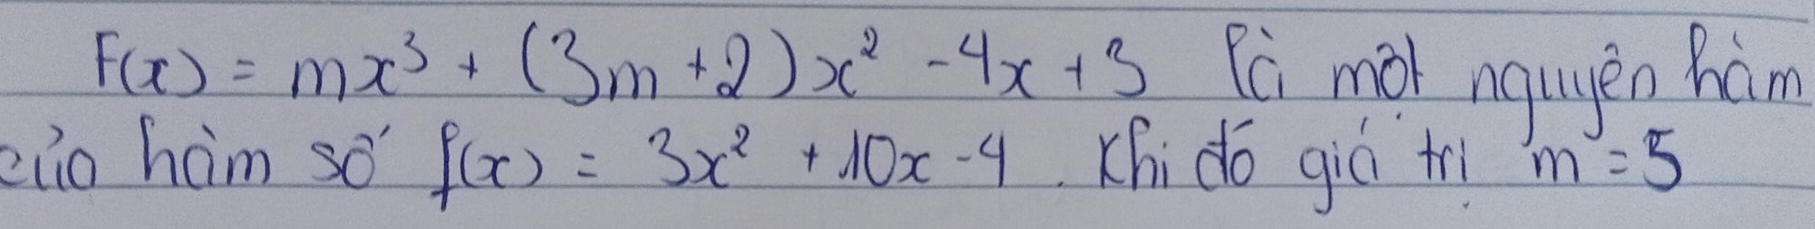 F(x) = mx³ + (3m+2)x² -4x+3 là một nguyên hàm
của hàm số f(x) = 3x² +10x-4. Khi đó giá trị m=5